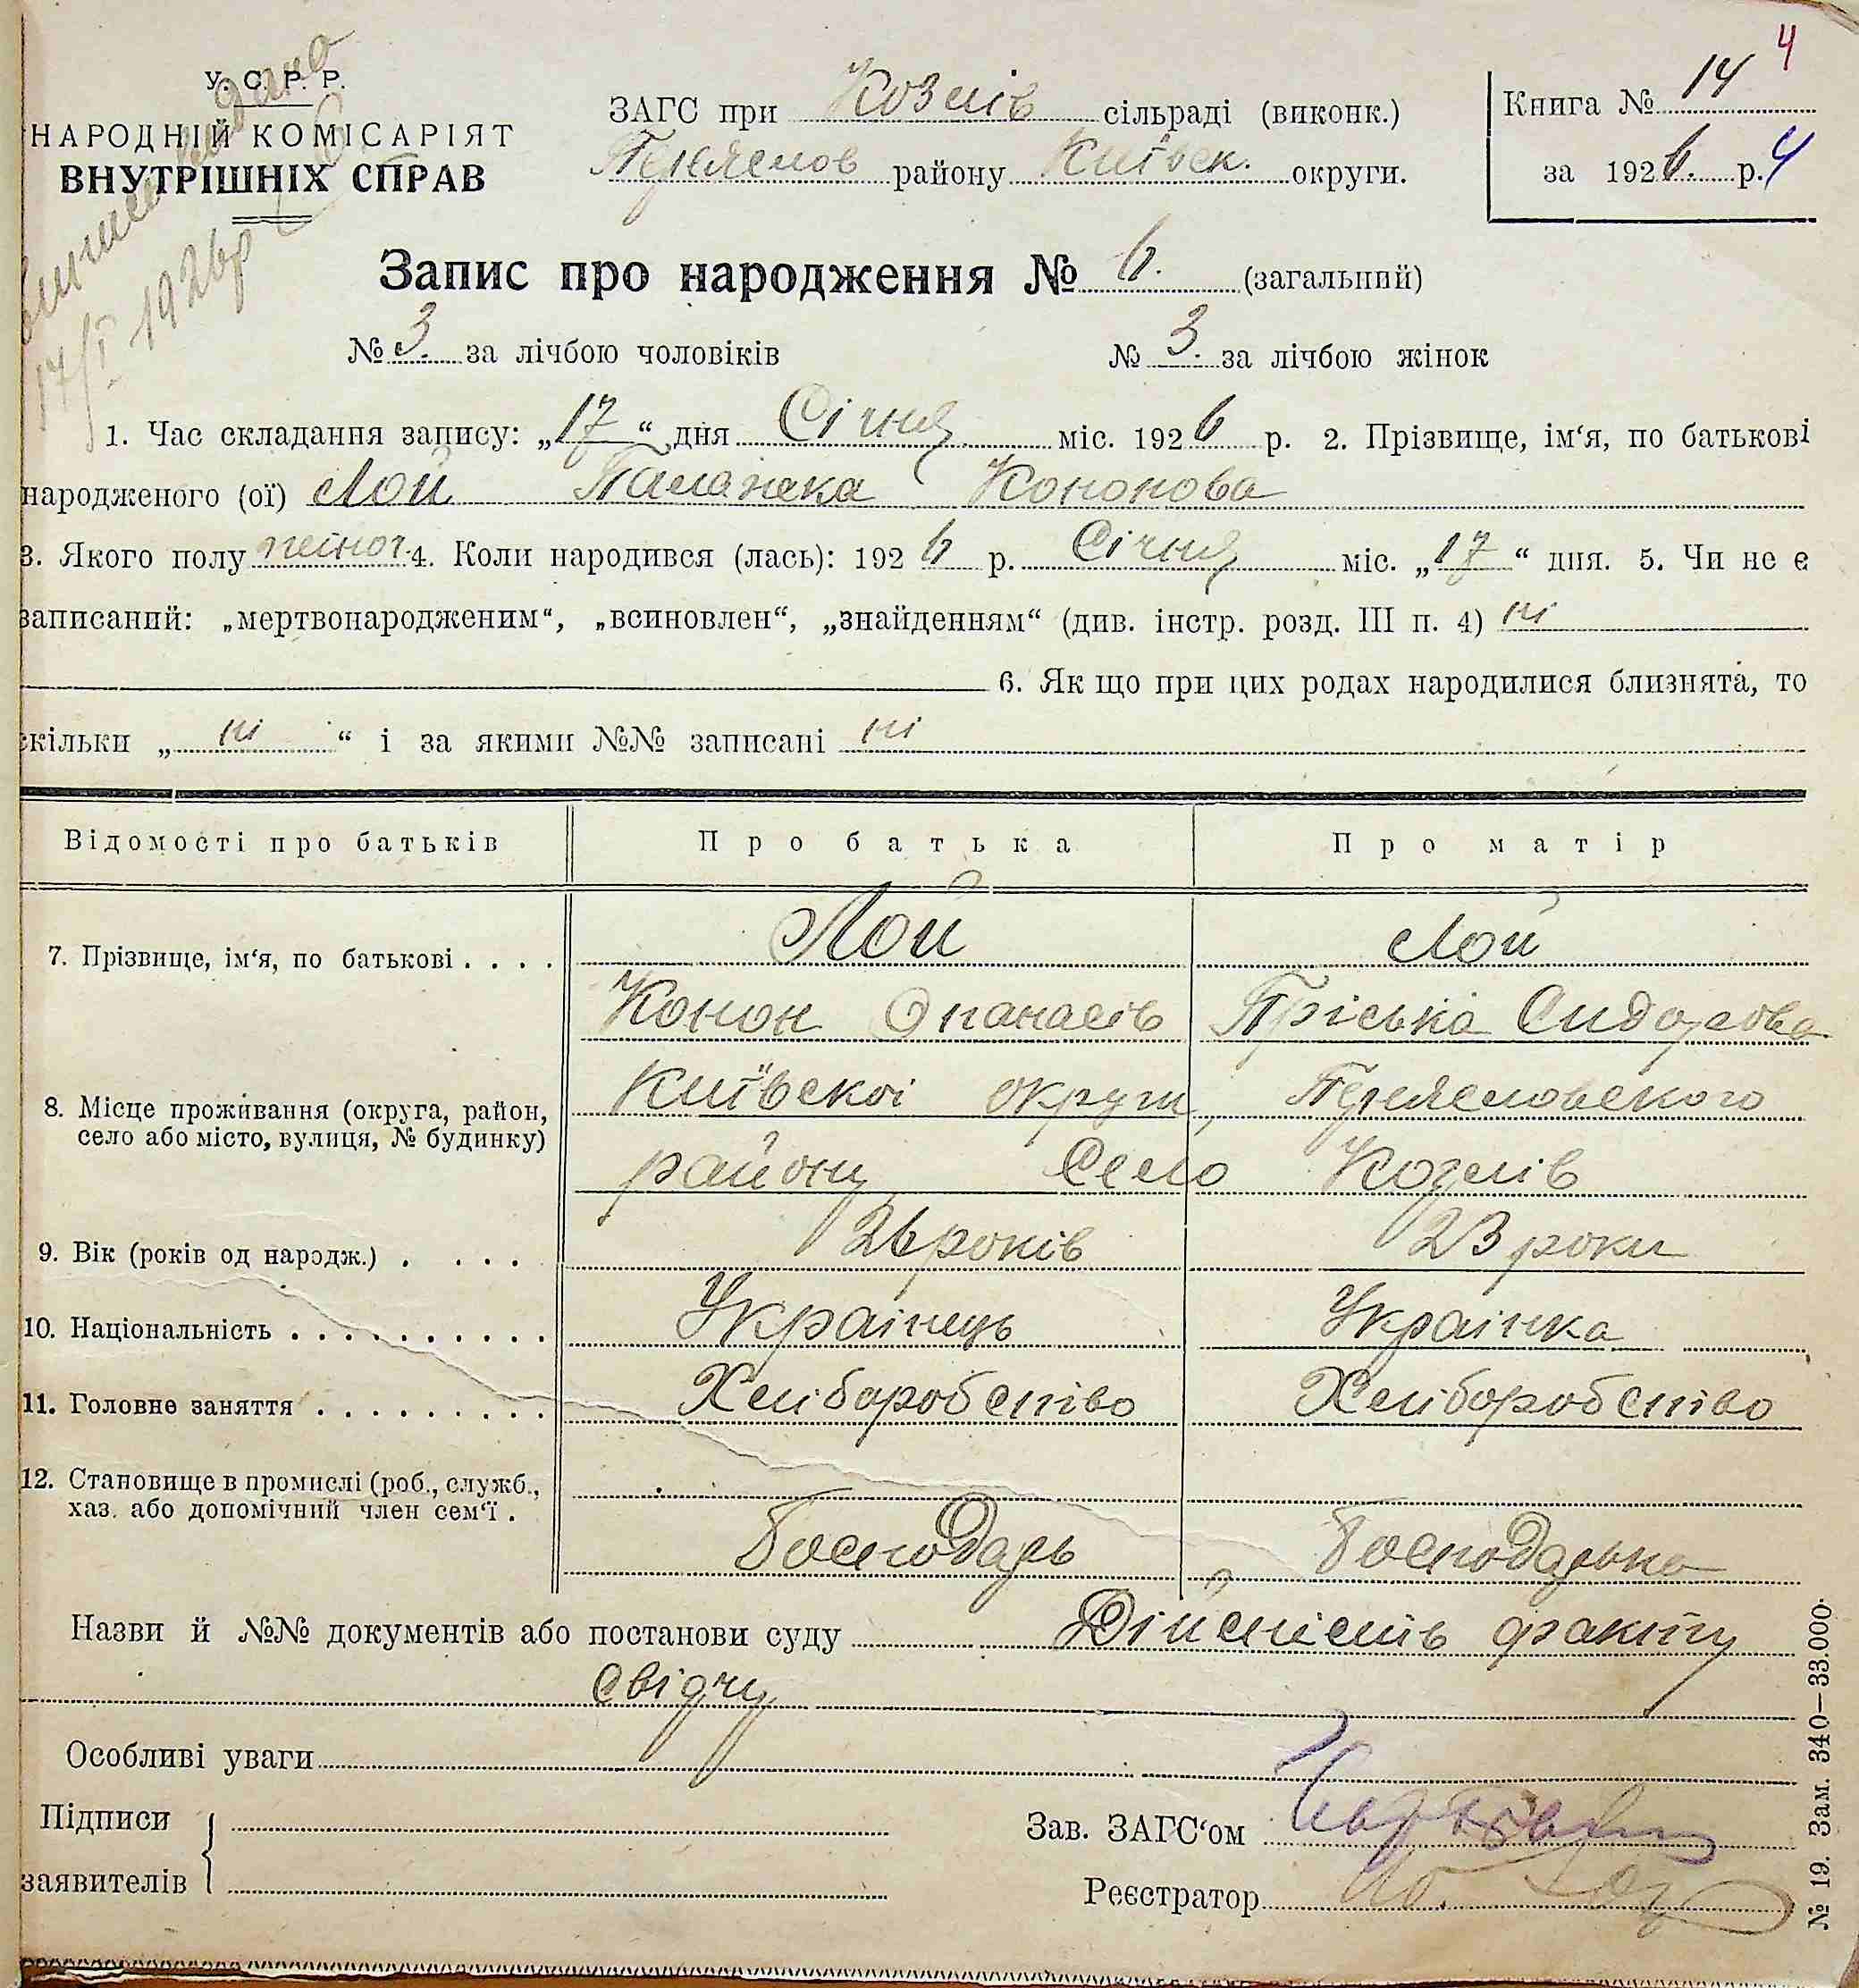 У. С. Р. Р.
НАРОДНІЙ КОМІСАРІЯТ
ВНУТРІШНІХ СПРАВ
17/I 1926р
ЗАГС при Козлів сільраді (виконк.)
Переяслов району Київск. округи.
4
Книга № 14
за 1926. р. 4
Запис про народження № 6. (загальний)
№ 3. за лічбою чоловіків № 3. за лічбою жінок
1. Час складання запису: „17“ дня Січня міс. 1926 р. 2. Прізвище, ім‘я, по батькові
народженого (ої) Лой Палажка Кононова
3. Якого полу жіноч. 4. Коли народився (лась): 1926 р. Січня міс. „17“ дня. 5. Чи не є
записаний: „мертвонародженим“, „всиновлен“, „знайденням“ (див. інстр. розд. III п. 4) ні
6. Як що при цих родах народилися близнята, то
скільки „ ні “ і за якими №№ записані ні
Відомості про батьків Про батька Про матір
7. Прізвище, ім‘я, по батькові . . . . Лой Лой
Конон Опанасів Пріська Сидорова
8. Місце проживання (округа, район,
село або місто, вулиця, № будинку)
Київскоі округи, Переясловского
району Село Козлів
9. Вік (років од народж.) . . . . 26 років 23 роки
10. Національність . . . . . . . . . . Украінець Украінка
11. Головне заняття . . . . . . . . . Хліборобство Хліборобство
12. Становище в промислі (роб., служб.,
хаз. або допомічний член сем‘ї .
Господарь Господарька
Назви й №№ документів або постанови суду Дійсність факту
свідчу
Особливі уваги
Підписи
заявителів
Зав. ЗАГС‘ом
Реєстратор
№ 19. Зам. 340—33.000.